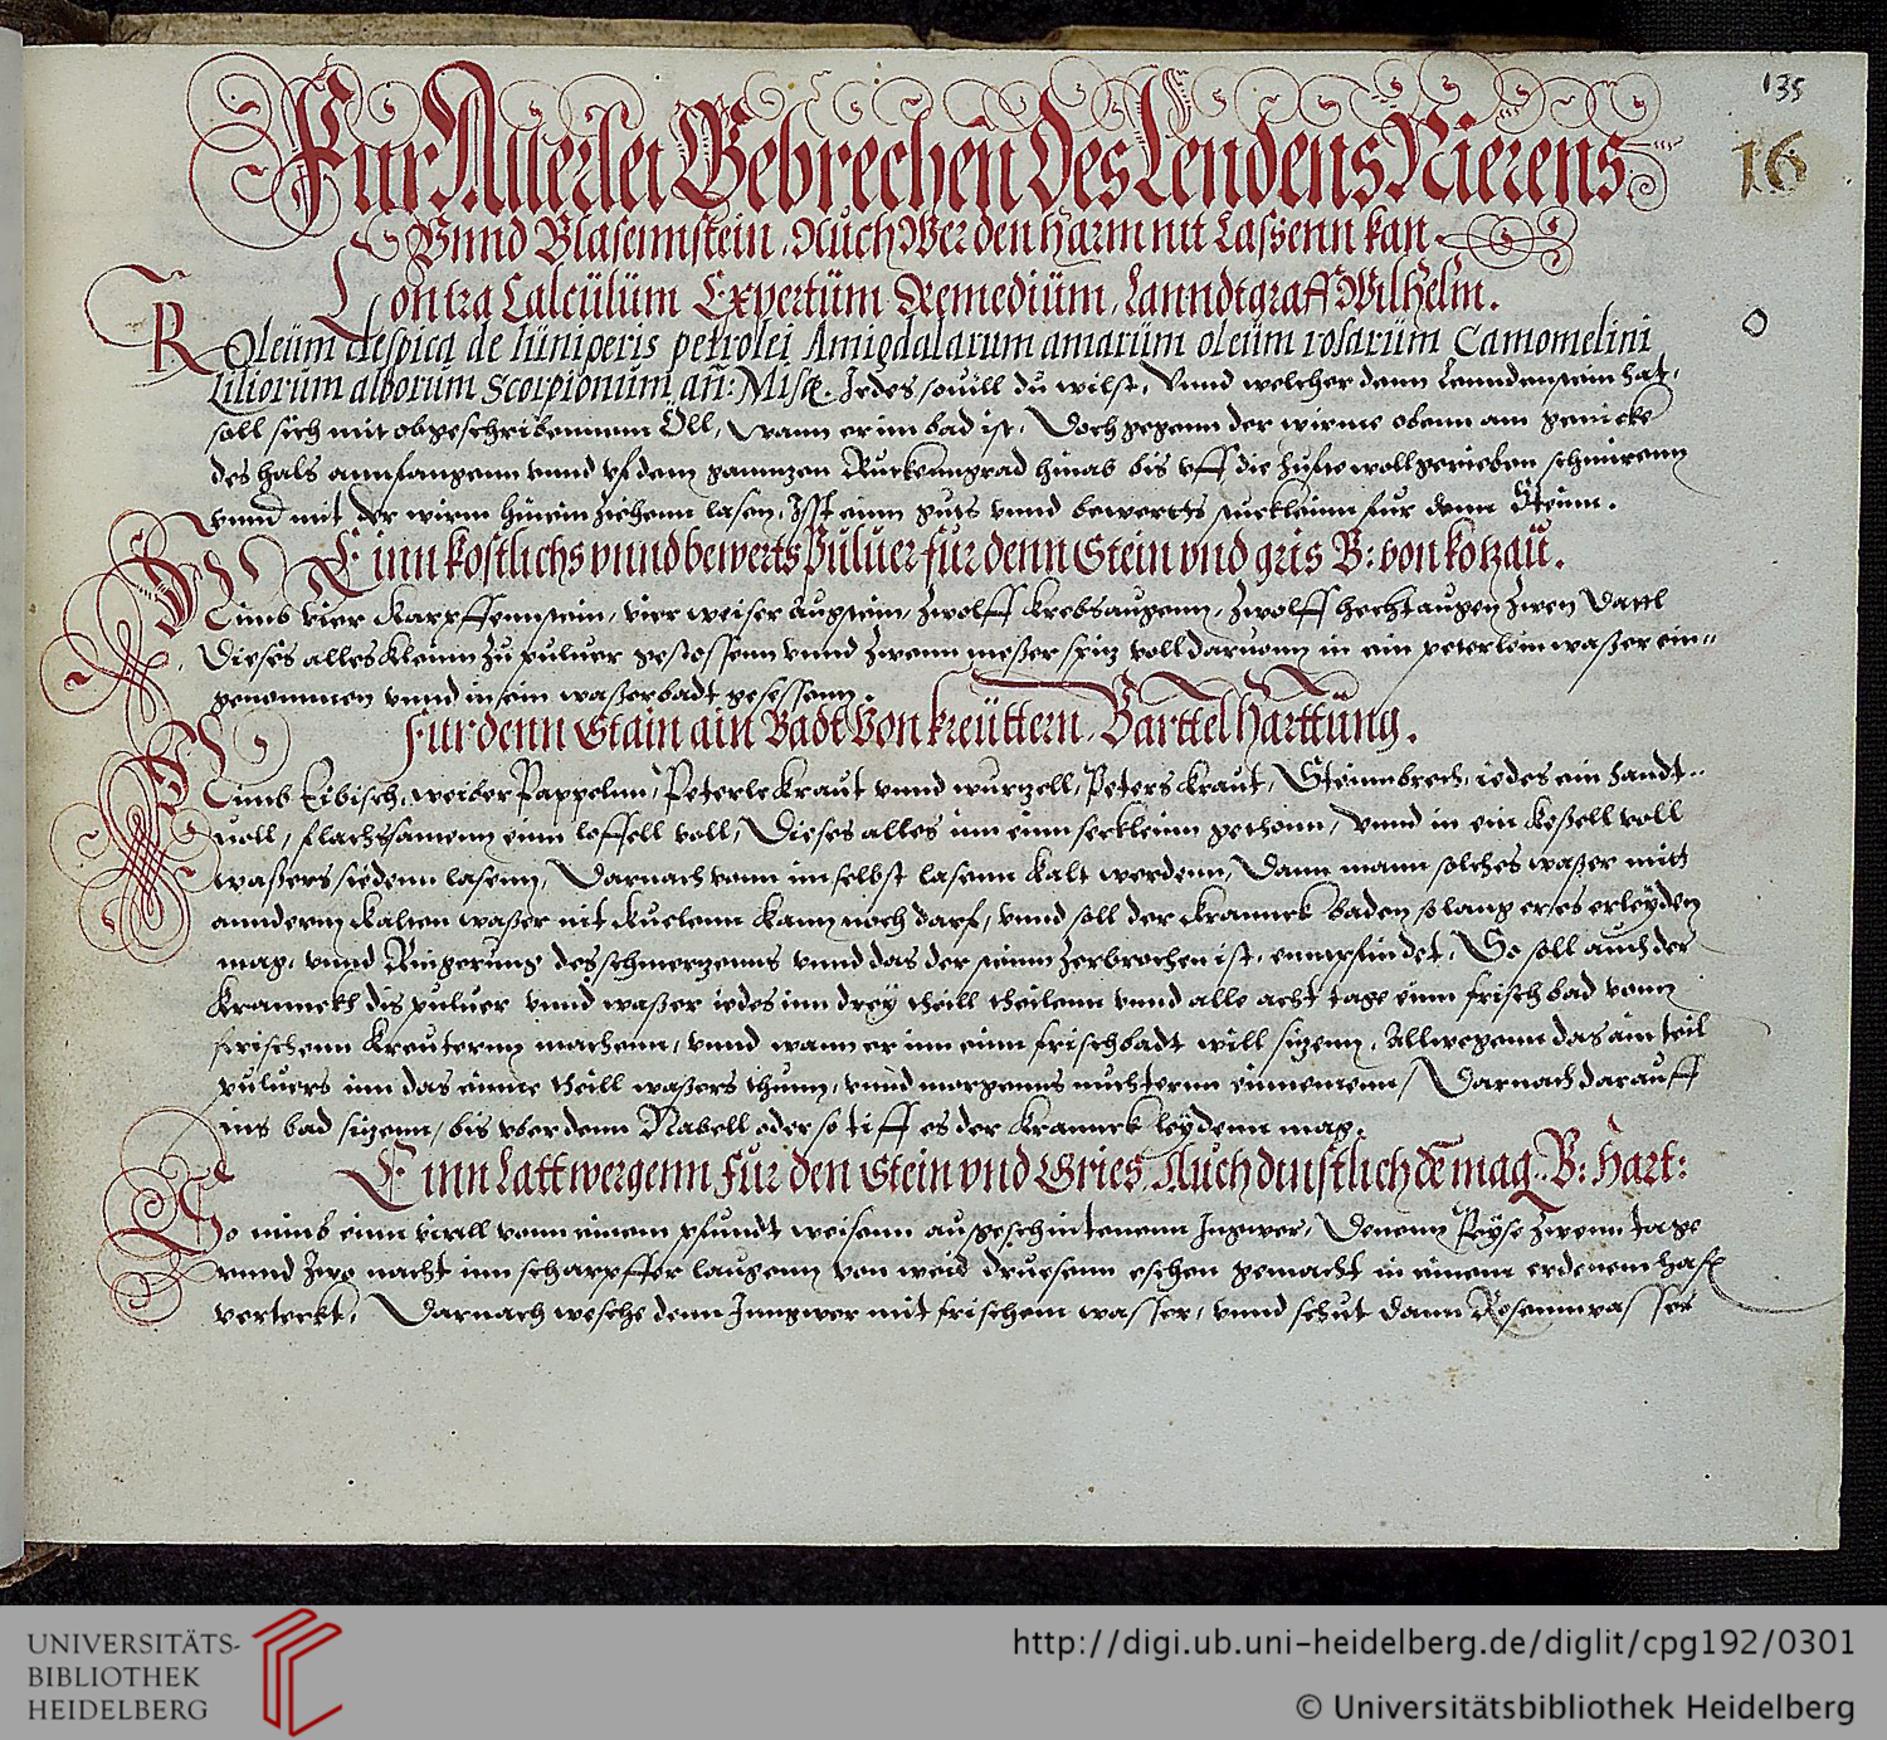 135
16
Fur Allerlei Gebrechen des Lendens Nierens
Vnnd Blasennstein, Auch Wer den Harm nit Lassenn kan.
Contra Calcülüm Expertüm Remediüm, Lanndtgraff Wilhelm.
R Oleüm despica de Iüniperis petrolei Amigdalarum amarüm oleüm rosarüm Camomelini
Liliorum alborum Scorpionum añ: Misce. Jedes souill du wilst, Vnnd welcher denn Lenndenstein hat,
soll sich mit obgeschribennem Öll, wann er im bad ist, Doch gegenn der wirme obenn am genicke
des hals annfangenn vnnd vf dem gannzen Ruckenngrad hinab bis vff die hufte woll gerieben schmirenn
vnnd mit der wirm hinein ziehenn lasen, Jsst einn guts vnnd bewerths stuckleinn fur denn Steinn.
Einn kostlichs vnnd bewerts Puluer für denn Stein vnd gris B: von kotzaü.
Nimb vier Karpffennstein, vier weiser Augstein, zwolff krebsaugenn, zwolff hechtaugen zwen Dattl
Dieses alles kleinn zu puluer gestossenn vnnd zwenn meßer spiz voll daruonn in ein peterlein waßer ein„
genommen vnnd in sein waßerbadt gesessenn.
Fur denn Stain ain Badt Von kreüttern, Barttel Harttüng.
Nimb Eibisch, weiber Pappelnn, Peterle kraut vnnd wurzell, Peters kraut, Steinnbrech, iedes ein handt„
uoll, flachssamenn einn loffell voll, Dieses alles inn einn seckleinn gethonn, Vnnd in ein keßell voll
waßers siedenn lasenn, Darnach vonn im selbst lasenn kalt werdenn, Dann mann solches waßer mitt
annderm kalten waßer nit kuelenn kann noch darf, vnnd soll der kranneck baden so lang er es erleyden
mag, vnnd Ringerung des schmerzenns vnnd das der steinn zerbrochen ist, enntpfindet, So soll auch der
Kranneckh dis puluer vnnd waßer iedes inn drey theill theilenn vnnd alle acht tage einn frisch bad vonn
frischenn kreuternn machenn, vnnd wann er inn einn frisch badt will sizenn, Allwegenn das ain teil
puluers inn das einne theill waßers thunn, vnnd morgenns nuchternn einnemenn, Darnach darauff
ins bad sizenn, bis vber denn Nabell oder so tiff es der kranneck leydenn mag.
Einn Lattwergenn für den Stein vnd Gries, Auch dinstlich dem mag. B: Hart:
So nimb einn virall vonn einem pfundt weisenn außgeschintenenn Ingwer, Denenn Peyse zwenn tage
vnnd zwo nacht inn scharpffer laugenn von weid druesenn eschen gemacht in einem erdenem haf
verteckt, Darnach wesche denn Inngwer mit frischem wasser, vnnd schut dann Rosennwasser
UNIVERSITÄTS-
BIBLIOTHEK
HEIDELBERG
http://digi.ub.uni-heidelberg.de/diglit/cpg192/0301
© Universitätsbibliothek Heidelberg